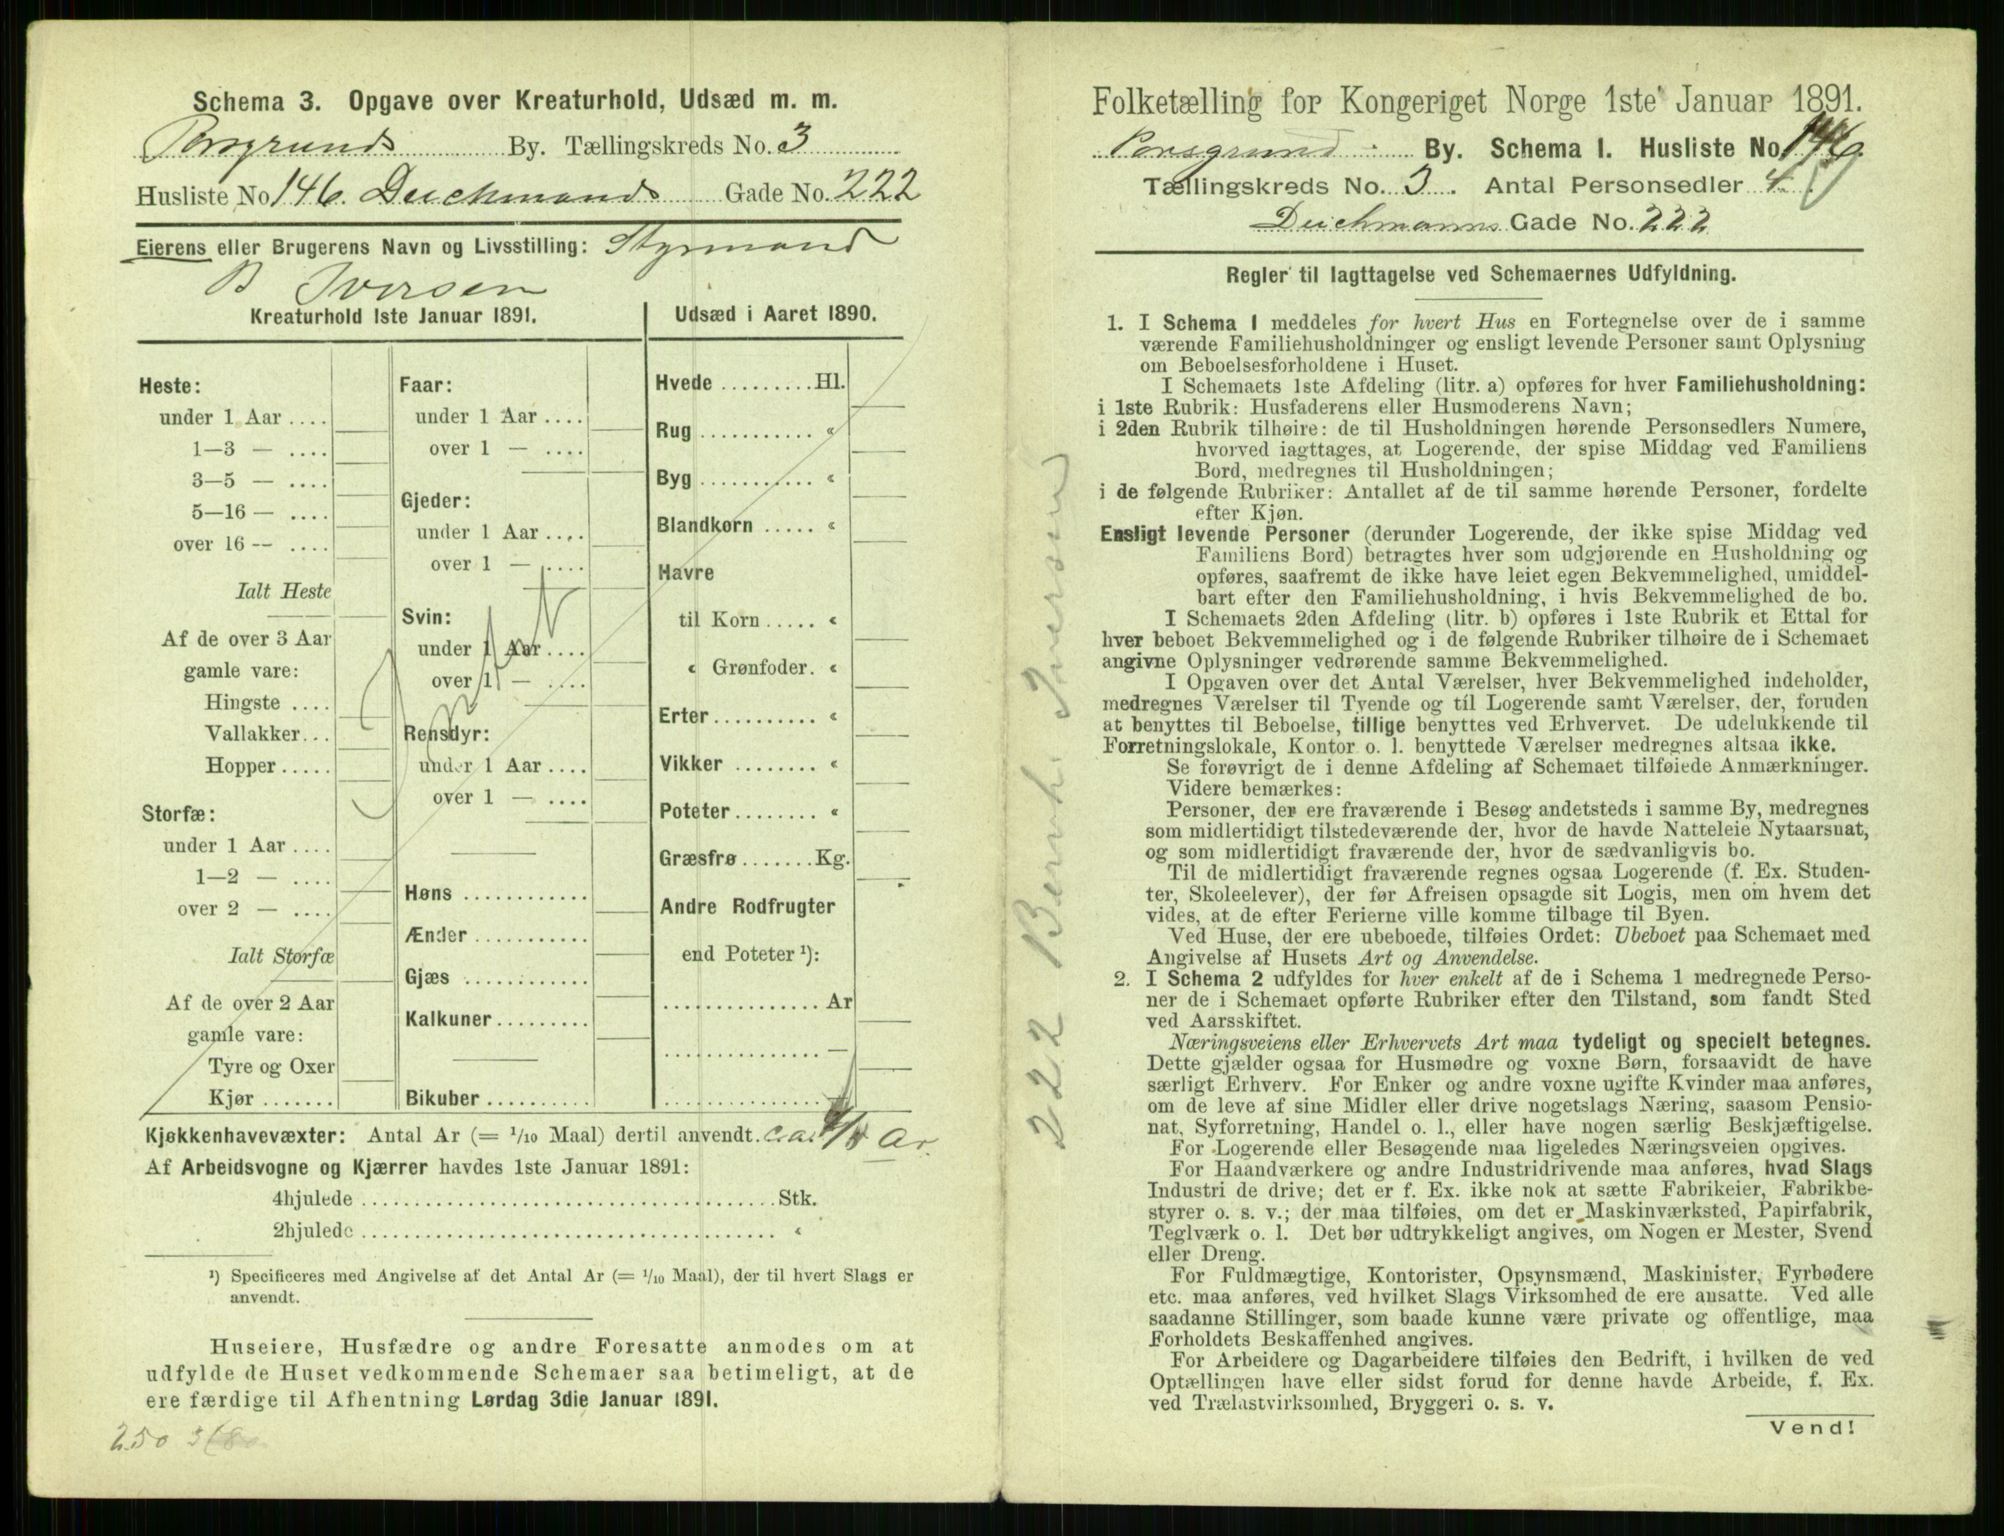 Schema 3. Opgave over Kreaturhold, Udsæd m. m.
Porsgrunds By. Tællingskreds No. 3
Husliste No 146. Deichmands Gade No. 222
Eierens eller Brugerens Navn og Livsstilling: Styrmand
B Iversen
Kreaturhold 1ste Januar 1891.
Heste:
under 1 Aar ....
1—3 — ....
3—5 — ....
5—16 — ....
over 16 -- ....
Ialt Heste
Af de over 3 Aar
gamle vare:
Hingste ....
Vallakker...
Hopper.....
Storfæ:
under 1 Aar ....
1—2 — ....
over 2 — ....
Ialt Storfæ
Af de over 2 Aar
gamle vare:
Tyre og Oxer
Kjør .......
Faar:
under 1 Aar ....
over 1 — ....
Gjeder:
under 1 Aar ....
over 1 — ....
Svin:
under 1 Aar ....
over 1 — ....
Rensdyr:
under 1 Aar ....
over 1 — ....
Høns ............
Ænder ...........
Gjæs ............
Kalkuner.........
Bikuber ..........
Udsæd i Aaret 1890.
Hvede .........Hl.
Rug........... «
Byg........... «
Blandkorn ..... «
Havre
til Korn ..... «
« Grønfoder. «
Erter.......... «
Vikker ........ «
Poteter........ «
Græsfrø.......Kg.
Andre Rodfrugter
end Poteter ¹):
............... Ar
............... —
Kjøkkenhavevæxter: Antal Ar (= 1/10 Maal) dertil anvendt. Ar.
Af Arbeidsvogne og Kjærrer havdes 1ste Januar 1891:
4hjulede ....................................Stk.
2hjulede .................................... «
¹) Specificeres med Angivelse af det Antal Ar (= 1/10 Maal), der til hvert Slags er
anvendt.
Huseiere, Husfædre og andre Foresatte anmodes om at
udfylde de Huset vedkommende Schemaer saa betimeligt, at de
ere færdige til Afhentning Lørdag 3die Januar 1891.
250
222 Bernh. Iversen)
Folketælling for Kongeriget Norge 1ste Januar 1891.
Porsgrund By. Schema I. Husliste No. 146
Tællingskreds No. 3. Antal Personsedler 4
Deichmanns Gade No. 222
Regler til Iagttagelse ved Schemaernes Udfyldning.
1. I Schema I meddeles for hvert Hus en Fortegnelse over de i samme
værende Familiehusholdninger og ensligt levende Personer samt Oplysning
om Beboelsesforholdene i Huset.
I Schemaets 1ste Afdeling (litr. a) opføres for hver Familiehusholdning:
i 1ste Rubrik: Husfaderens eller Husmoderens Navn;
i 2den Rubrik tilhøire: de til Husholdningen hørende Personsedlers Numere,
hvorved iagttages, at Logerende, der spise Middag ved Familiens
Bord, medregnes til Husholdningen;
i de følgende Rubriker: Antallet af de til samme hørende Personer, fordelte
efter Kjøn.
Ensligt levende Personer (derunder Logerende, der ikke spise Middag ved
Familiens Bord) betragtes hver som udgjørende en Husholdning og
opføres, saafremt de ikke have leiet egen Bekvemmelighed, umiddel-
bart efter den Familiehusholdning, i hvis Bekvemmelighed de bo.
I Schemaets 2den Afdeling (litr. b) opføres i 1ste Rubrik et Ettal for
hver beboet Bekvemmelighed og i de følgende Rubriker tilhøire de i Schemaet
angivne Oplysninger vedrørende samme Bekvemmelighed.
I Opgaven over det Antal Værelser, hver Bekvemmelighed indeholder,
medregnes Værelser til Tyende og til Logerende samt Værelser, der, foruden
at benyttes til Beboelse, tillige benyttes ved Erhvervet. De udelukkende til
Forretningslokale, Kontor o. l. benyttede Værelser medregnes altsaa ikke.
Se forøvrigt de i denne Afdeling af Schemaet tilføiede Anmærkninger.
Videre bemærkes:
Personer, der ere fraværende i Besøg andetsteds i samme By, medregnes
som midlertidigt tilstedeværende der, hvor de havde Natteleie Nytaarsnat,
og som midlertidigt fraværende der, hvor de sædvanligvis bo.
Til de midlertidigt fraværende regnes ogsaa Logerende (f. Ex. Studen-
ter, Skoleelever), der før Afreisen opsagde sit Logis, men om hvem det
vides, at de efter Ferierne ville komme tilbage til Byen.
Ved Huse, der ere ubeboede, tilføies Ordet: Ubeboet paa Schemaet med
Angivelse af Husets Art og Anvendelse.
2. I Schema 2 udfyldes for hver enkelt af de i Schema 1 medregnede Perso-
ner de i Schemaet opførte Rubriker efter den Tilstand, som fandt Sted
ved Aarsskiftet.
Næringsveiens eller Erhvervets Art maa tydeligt og specielt betegnes.
Dette gjælder ogsaa for Husmødre og voxne Børn, forsaavidt de have
særligt Erhverv. For Enker og andre voxne ugifte Kvinder maa anføres,
om de leve af sine Midler eller drive nogetslags Næring, saasom Pensio-
nat, Syforretning, Handel o. l., eller have nogen særlig Beskjæftigelse.
For Logerende eller Besøgende maa ligeledes Næringsveien opgives.
For Haandværkere og andre Industridrivende maa anføres, hvad Slags
Industri de drive; det er f. Ex. ikke nok at sætte Fabrikeier, Fabrikbe-
styrer o. s. v.; der maa tilføies, om det er Maskinværksted, Papirfabrik,
Teglværk o. l. Det bør udtrykkeligt angives, om Nogen er Mester, Svend
eller Dreng.
For Fuldmægtige, Kontorister, Opsynsmænd, Maskinister, Fyrbødere
etc. maa anføres, ved hvilket Slags Virksomhed de ere ansatte. Ved alle
saadanne Stillinger, som baade kunne være private og offentlige, maa
Forholdets Beskaffenhed angives.
For Arbeidere og Dagarbeidere tilføies den Bedrift, i hvilken de ved
Optællingen have eller sidst forud for denne havde Arbeide, f. Ex.
ved Trælastvirksomhed, Bryggeri o. s. v.
Vend!